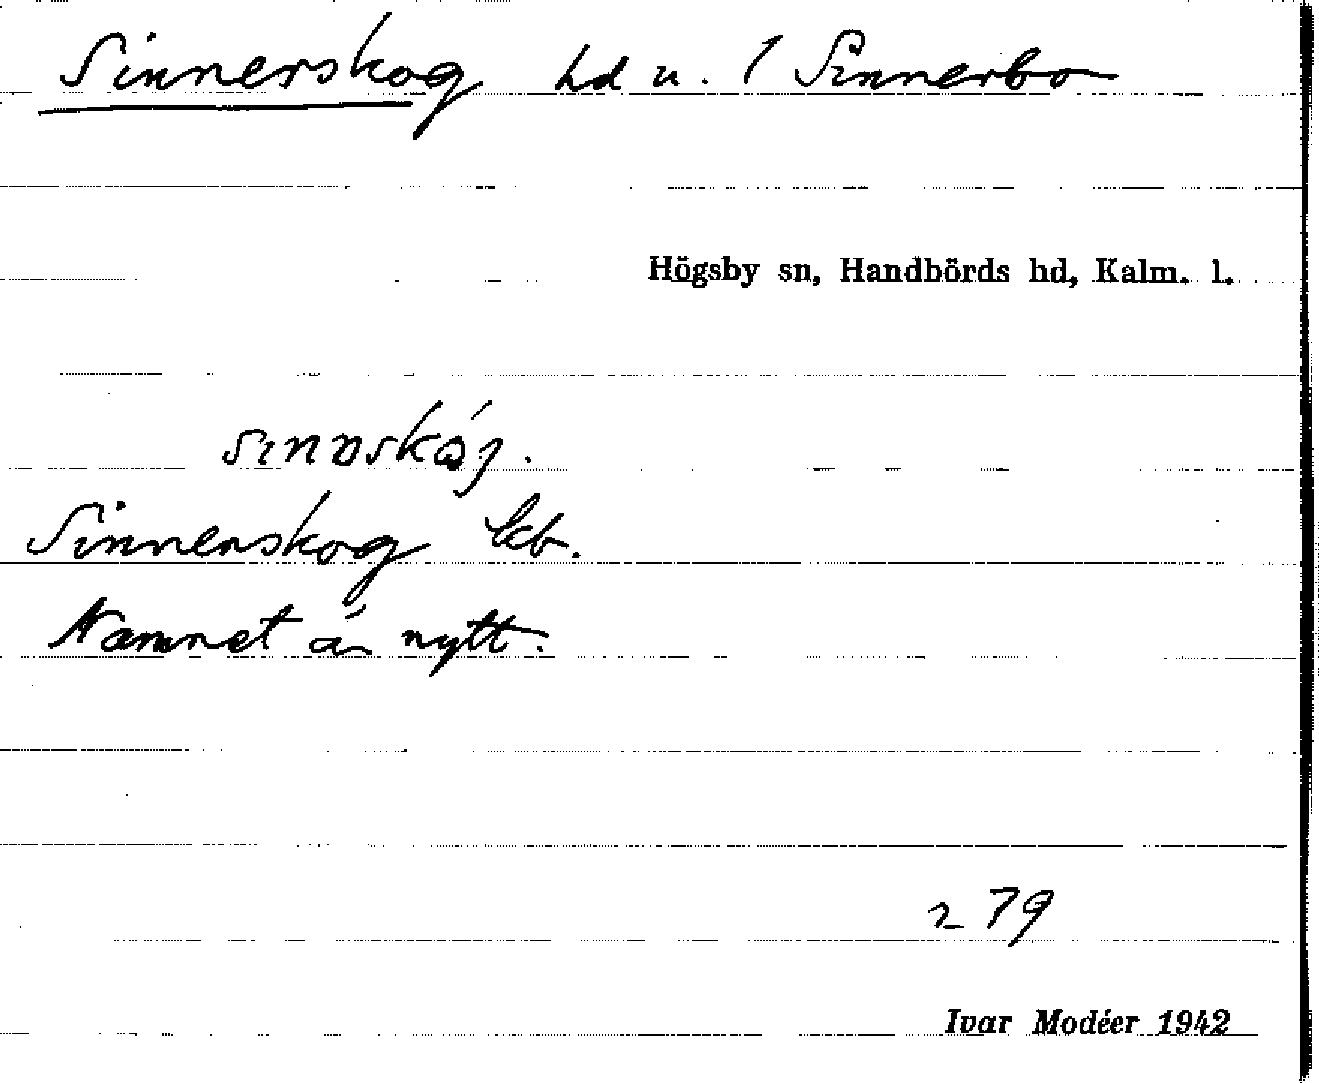 Sinnerskog hd u. 1 Sinnerbo
Högsby sn, Handbörds hd, Kalm. l.
Sinnerskog kb.
Namnet är nytt.
279
Ivar Modéer 1942